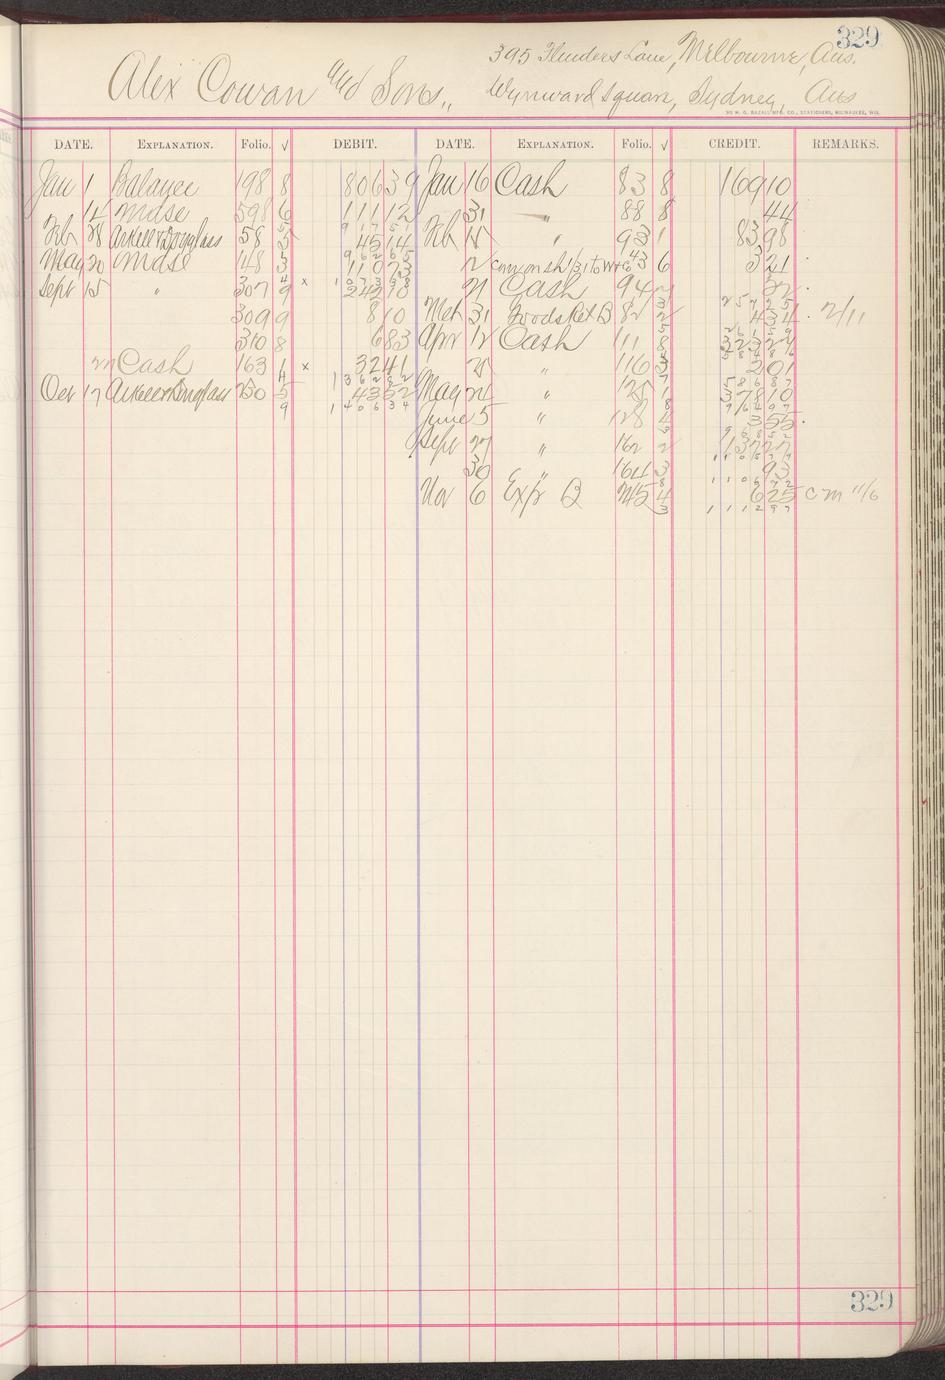 329
Alex Cowan and Sons., 395 Flinders Lane, Melbourne, Aus.
Wynward Square, Sydney, Aus
DATE. EXPLANATION. Folio. √ DEBIT. DATE. EXPLANATION. Folio. √ CREDIT. REMARKS.
Jan 1 Balance 198 8 80639 Jan 16 Cash 83 8 16910
14 Mdse 598 6 11112 31 " 88 8 44
Feb 28 Arkell & Douglass 58 4514 Feb 15 " 93 1 8398
May 20 Mdse 148 3 11073 6 321
Sept 15 " 307 9 24210 21 Cash 94
309 9 810 Mch 31 Goods Ret B 82 2 434 2/11
310 8 683 Apr 12 Cash 111 8
Cash 163 1 x 3241 " 116 3 201
Oct 17 Arkell & Douglass 250 5 4352 May 24 " 125 1 37810
June 5 " 128 4 355
Sept 27 " 162 2 13727
30 " 164 3 93
Nov 6 Exp B 245 4 625 cm 11/6
111297
329